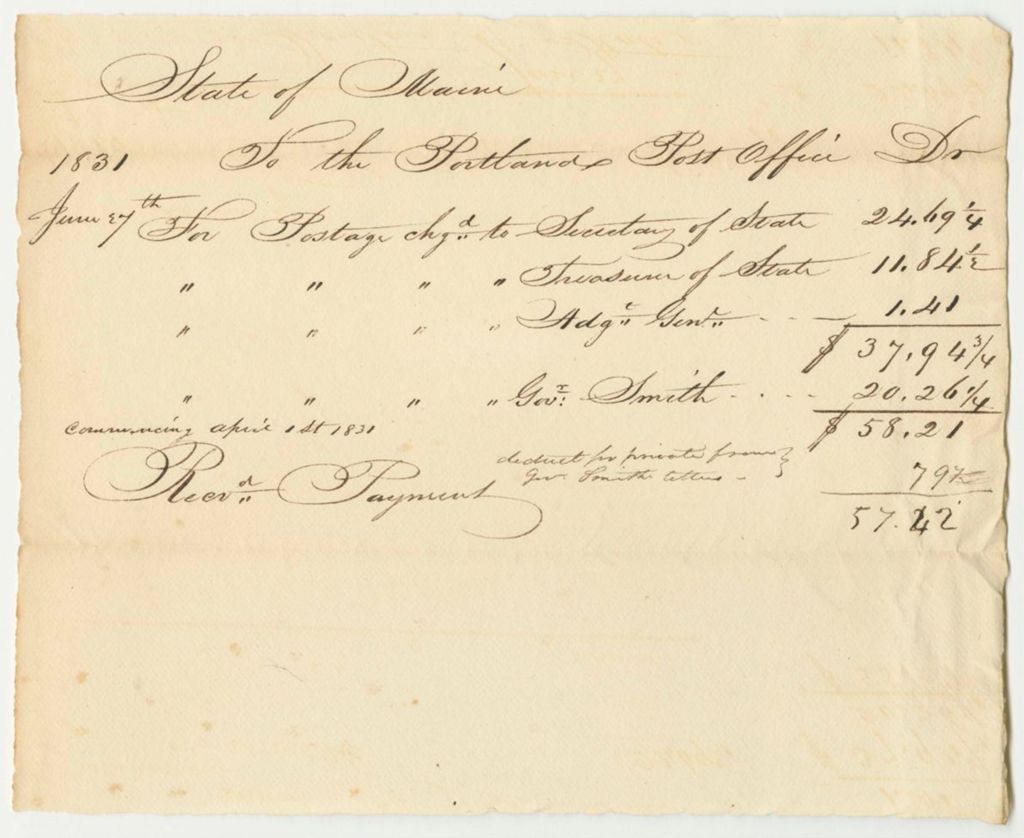 State of Maine
1831 To the Portland Post Office Dr
June 27th For Postage chgd to Secretary of State 24.69 1/4
" " " " Treasurer of State 11.84 1/2
" " " " Adgt Genr - - - 1.41
$ 37,94 3/4
" " " " Govr: Smith - - - - 20.26 1/4
commencing april 1st 1831 $ 58,21
deduct for private from }
Gov. Smith letters - } 79
Recvd Payment
57.42